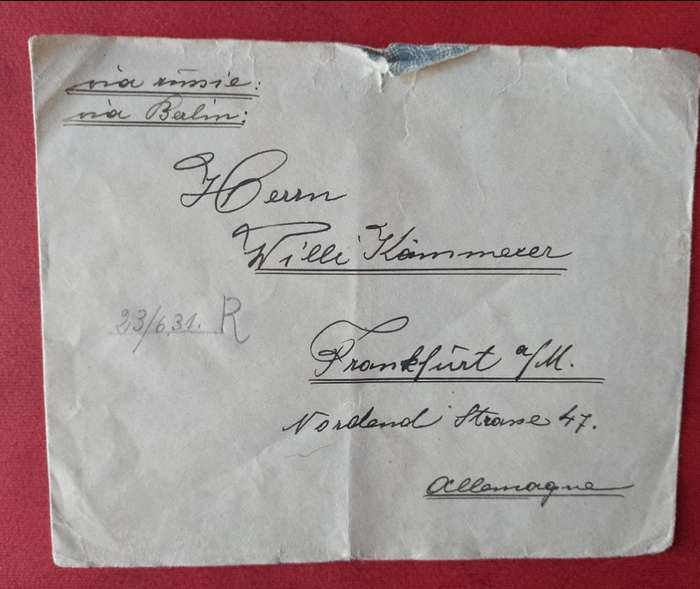 via russie:
via Berlin:
Herrn
Willi Kämmerer
23/6.31. R
Frankfurt a/M.
Nordend Strasse 47.
Allemagne